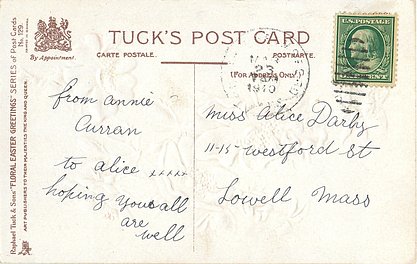 TUCK'S POST CARD
CARTE POSTALE. POSTKARTE.
(FOR ADDRESS ONLY)
By Appointment.
Raphael Tuck & Sons' "FLORAL EASTER GREETINGS" SERIES of Post Cards No. 129.
ART PUBLISHERS TO THEIR MAJESTIES THE KING AND QUEEN.
U.S. POSTAGE
23
1910
from annie
Curran
to alice xxxxx
hoping you all
are
well
Miss Alice Darby
11-15 westford st
Lowell Mass